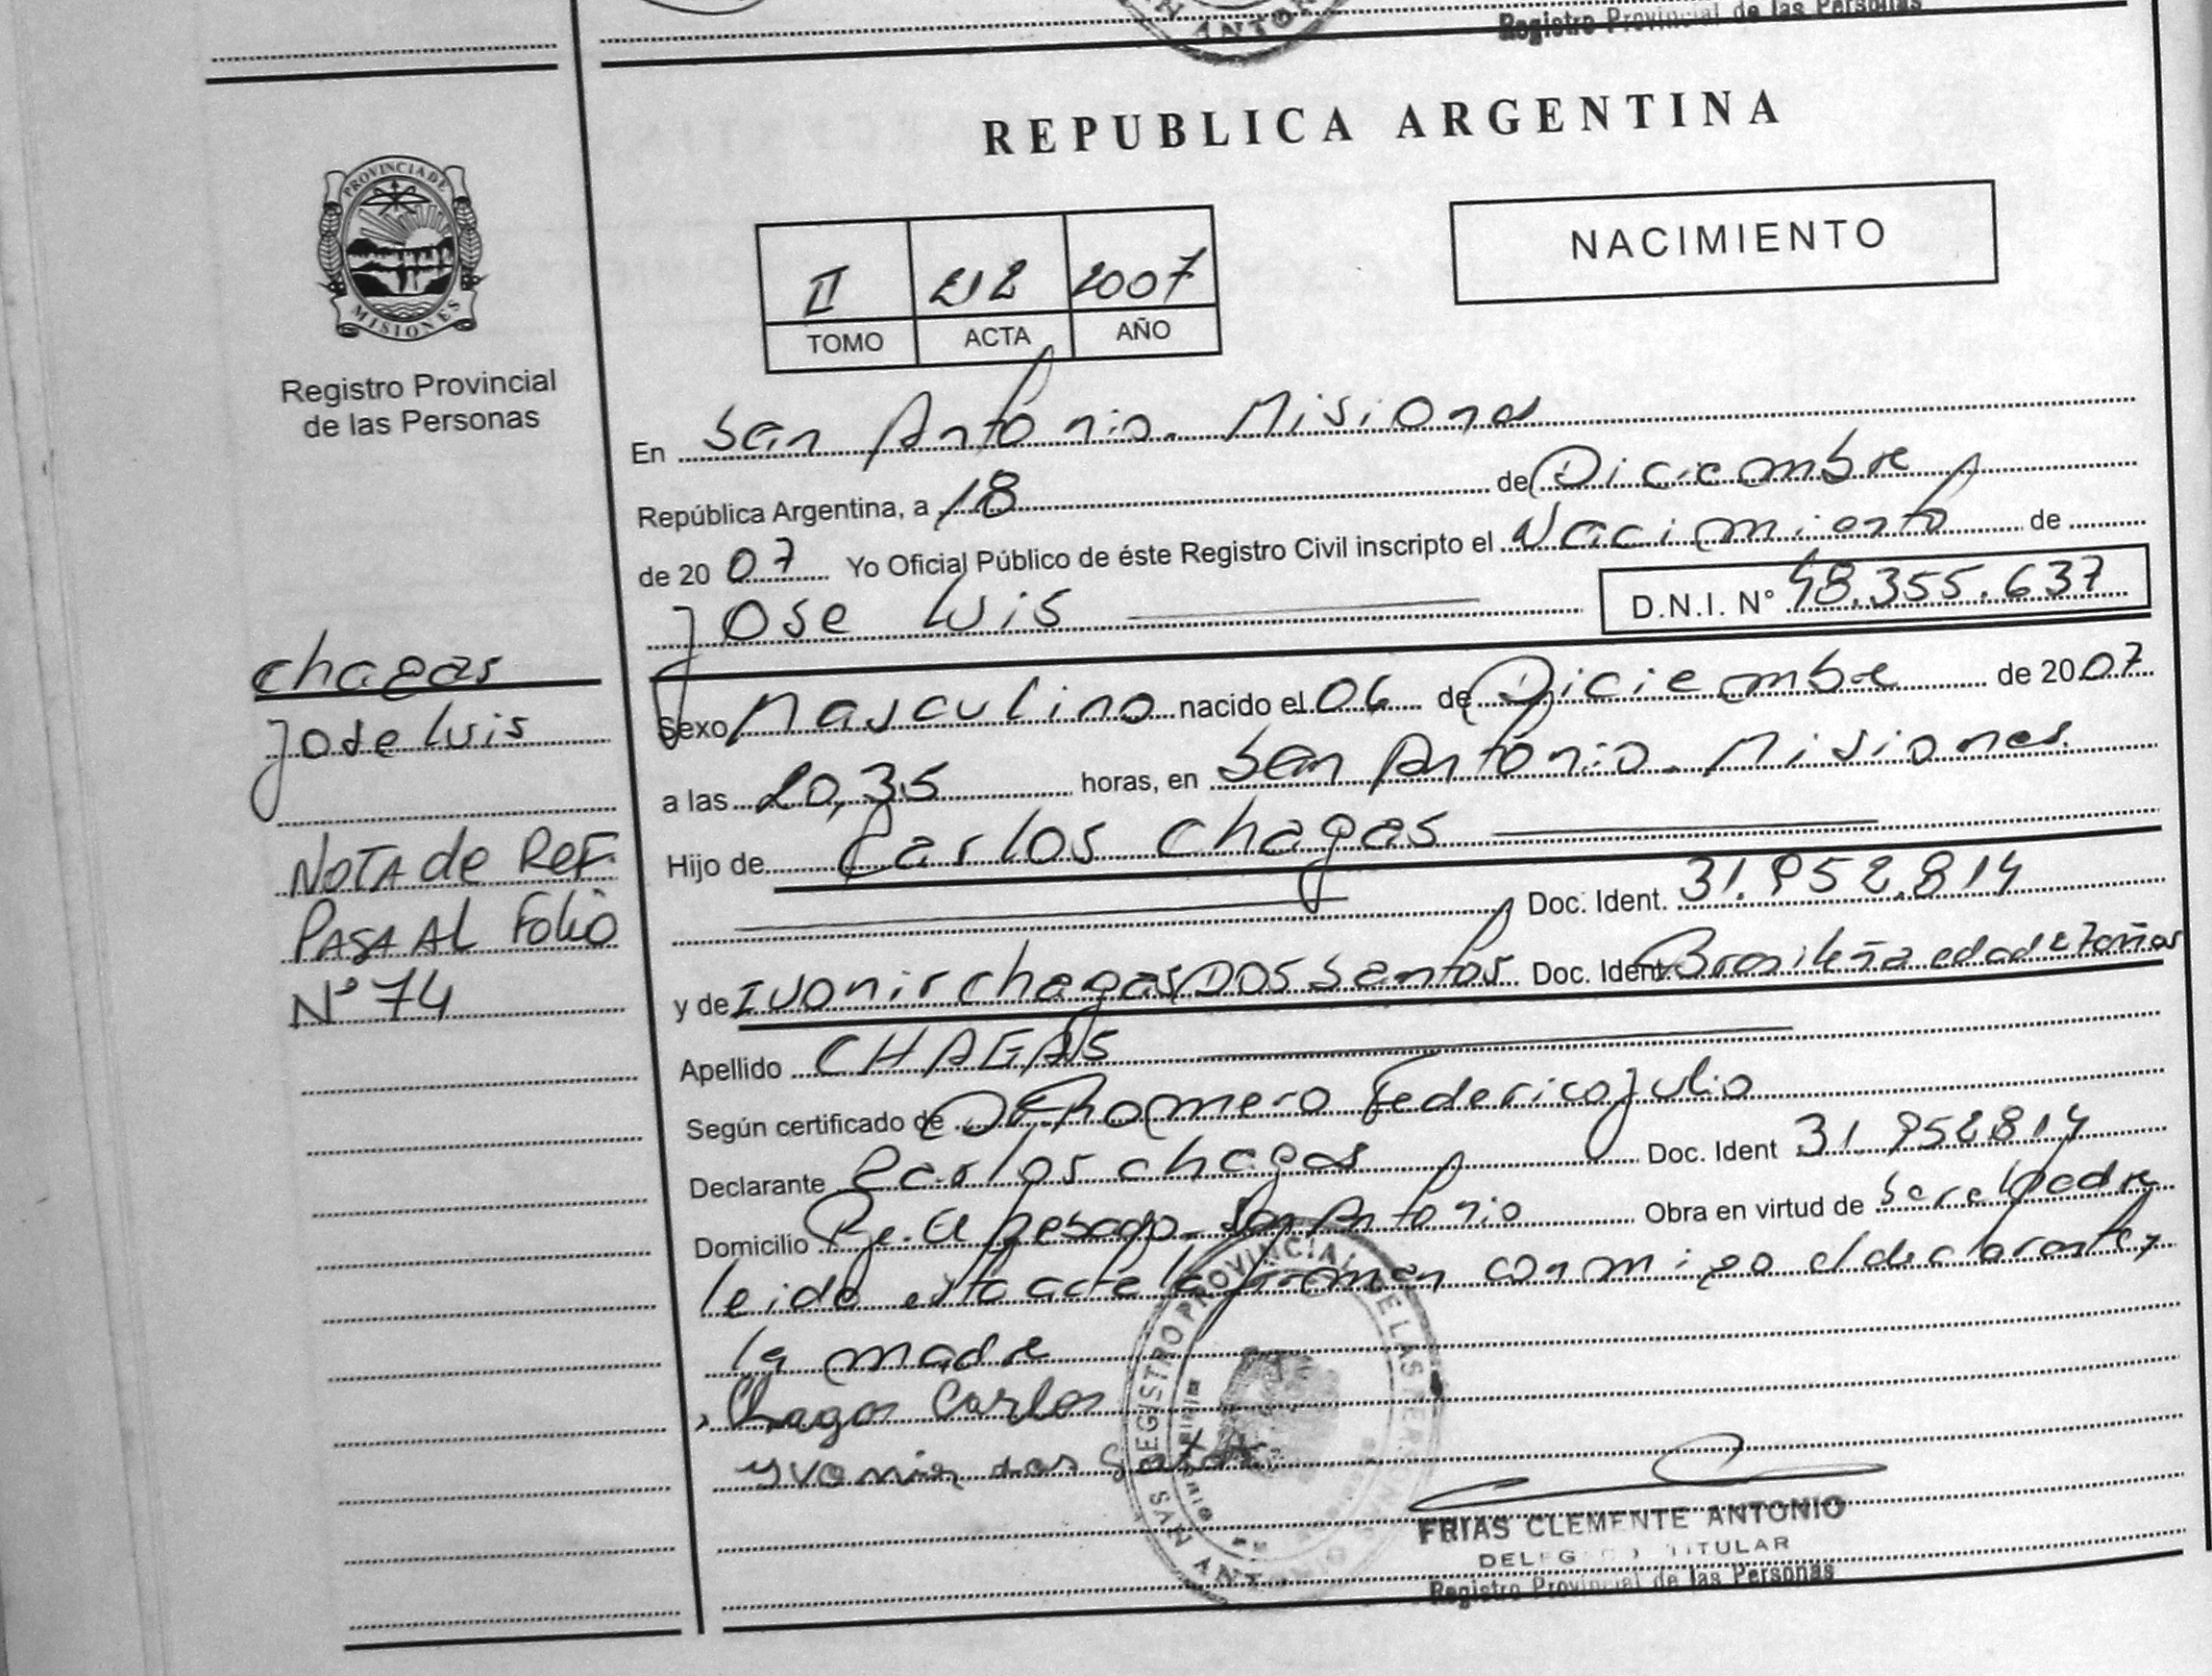 Registro Provincial de las Personas
REPUBLICA ARGENTINA
PROVINCIA DE
MISIONES
Registro Provincial
de las Personas
NACIMIENTO
II 212 2007
TOMO ACTA AÑO
En San Antonio. Misiones
República Argentina, a 18 de Diciembre
de 2007 Yo Oficial Público de éste Registro Civil inscripto el Nacimiento de
Jose Luis D.N.I. N° 48.355.637
Chagas
Jose Luis
NOTA de REF.
PASA AL Folio
N° 74
Sexo Masculino nacido el 06 de Diciembre de 2007
a las 20,35 horas, en San Antonio. Misiones.
Hijo de Carlos Chagas
Doc. Ident. 31.952.814
y de Ivonir chagas Dos Santos Doc. Ident. Brasileña edad 27 años
Apellido CHAGAS
Según certificado de Romero Federico Julio
Declarante Carlos chagas Doc. Ident 31.952814
Domicilio Pje. El pesado. San Antonio Obra en virtud de ser el Padre
leida esta acta la firman conmigo el declarante y
la madre
Chagas Carlos
yvonir dos
REGISTRO PROVINCIAL DE LAS PERSONAS
SAN ANTONIO
FRIAS CLEMENTE ANTONIO
TITULAR
Registro Provincial de las Personas